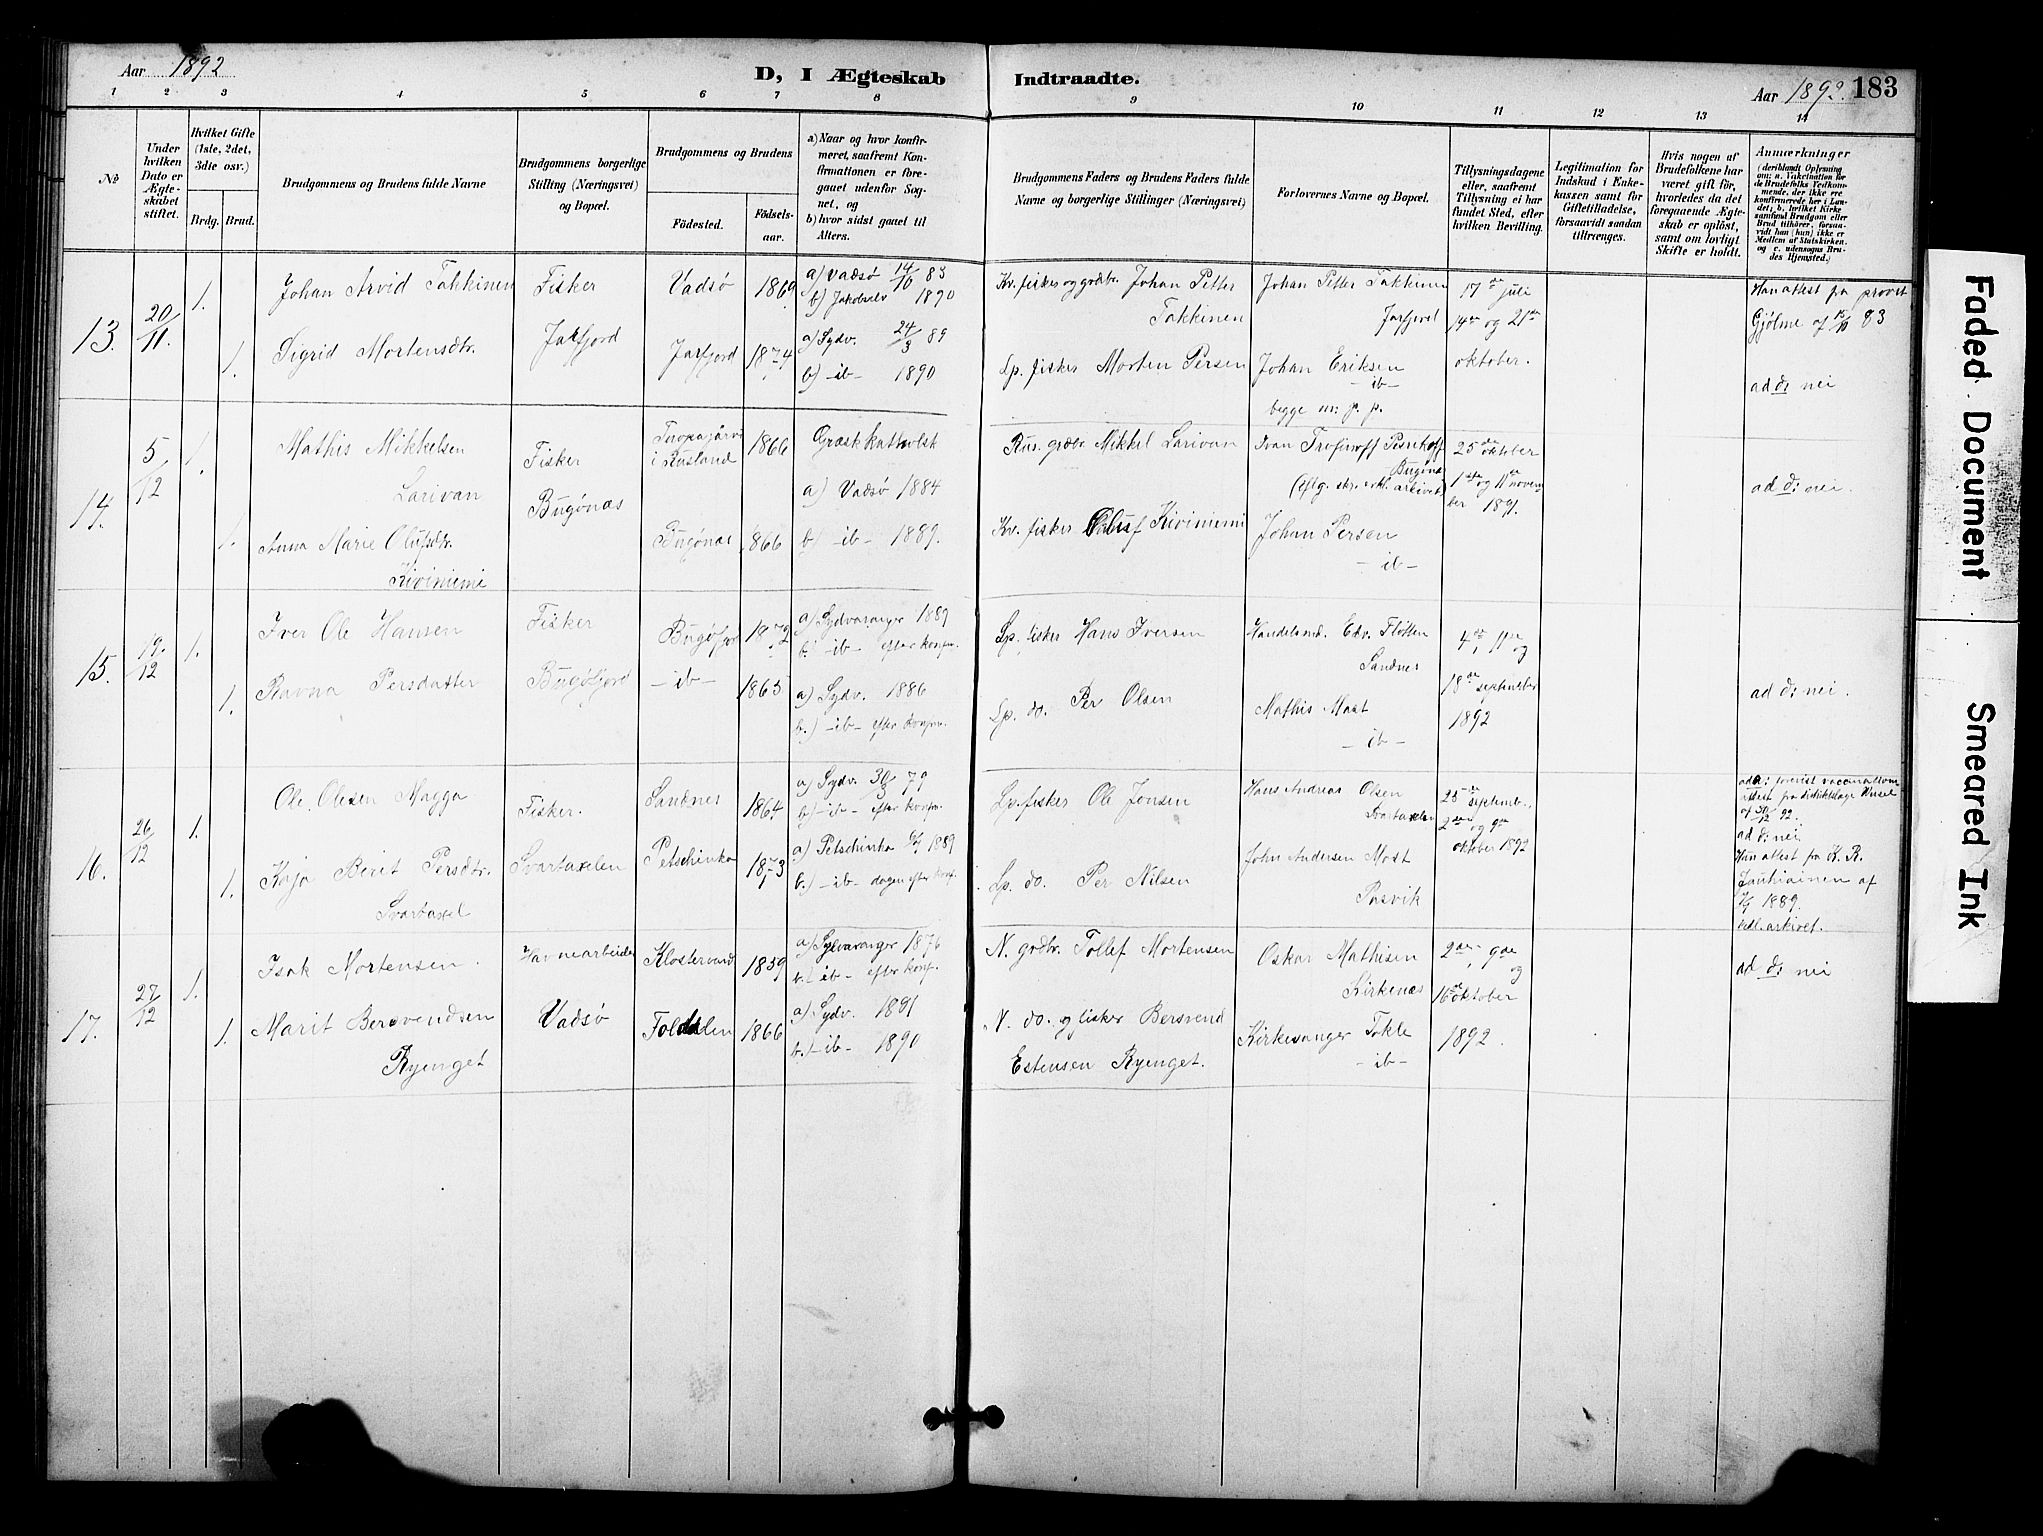 Aar 1892
D, I Ægteskab
Indtraadte.
Aar 1892. 183
1 2 3 4 5 6 7 8
9 10 11 12 13 14
No
Under hvilken Dato er Ægteskabet stiftet.
Hvilket Gifte (1ste, 2det, 3die osv.)
Brdg. Brud.
Brudgommens og Brudens fulde Navne
Brudgommens borgerlige Stilling (Næringsvei) og Bopæl.
Brudgommens og Brudens
Födested.
Födsels-aar.
a) Naar og hvor konfirmeret, saafremt Konfirmationen er foregaaet udenfor Sognet, og
b) hvor sidst gaaet til Alters.
Brudgommens Faders og Brudens Faders fulde Navne og borgerlige Stillinger (Næringsvei)
Forlovernes Navne og Bopæl.
Tillysningsdagene eller, saafremt Tillysning ei har fundet Sted, efter hvilken Bevilling.
Legitimation for Indskud i Enkekassen samt for Giftetilladelse, forsaavidt saadan tiltrænges.
Hvis nogen af Brudefolkene har været gift för, hvorledes da det foregaaende Ægteskab er oplöst, samt om lovligt Skifte er holdt.
Anmærkninger
(deriblandt Oplysning om: a. Vakcination for de Brudefolks Vedkommende, der ikke ere konfirmerede her i Landet; b. hvilket Kirkesamfund Brudgom eller Brud tilhörer, forsaavidt han (hun) ikke er Medlem af Statskirken, og c. udensogns Brudes Hjemsted.)
13. 20/11. 1.
Johan Arvid Takkinen
Fisker
Vadsø 1869
a) Vadsø 14/10 83
b) Jakobselv 1890
Kv. fisker og grdbr. Johan Petter
Takkinen
Johan Petter Takkinen
Jarfjord
17de juli
14de og 21de
oktober.
Han attest fra provst
Gjölme af 15/10 83
1. Sigrid Mortensdtr.
Jarfjord
Jarfjord 1874
a) Sydv. 24/3 89
b) -ib- 1890
Lp. fisker Morten Persen
Johan Eriksen
-ib-
begge m: p. p.
ad d: nei
14. 5/12 1.
Mathis Mikkelsen
Larivan
Fisker
Bugönæs
i Rusland 1866
Græsk katholsk
Rus. grdbr. Mikkel Larivan
Ivan Trofimoff
Bugönæs
25de oktober
1ste og 11te novem-
ber 1891.
ad d: nei.
1. Anna Marie Olufsdtr.
Kiviniemi
Bugönæs 1866
a) Vadsø 1884
b) -ib- 1889.
Kv. fisker Oluf Kiviniemi
Johan Persen
-ib-
15. 19/12 1.
Iver Ole Hansen
Fisker
Bugöfjord 1872
a) Sydvaranger 1889
b. -ib- efter konfm.
Lp. fisker Hans Iversen
Handelsmd. Edv. Fløtten
Sandnes
4de, 11te
og
18de september
1892
1. Ravna Persdatter
Bugöfjord
-ib- 1865
a) Sydv. 1886
b.) -ib- efter konfm.
Lp. do. Per Olsen
Mathis Mast
-ib-
ad d: nei.
16. 26/12 1.
Ole Olesen Magga
Fisker.
Sandnes 1864
a) Sydv. 79
b) -ib- efter konf.
Lp. fisker Ole Jonsen
Hans Andreas Olsen
Svartaxelen
25de septemb.
2den og 9de
oktober 1892
ad d: nei
1. Kaja Berit Persdtr.
Svartaxel
Svartaxelen
Petschinka 1873
a) Petschinka 1889
b.) -ib- dagen efter konf.
Lp. do. Per Nilsen
John Andersen Mast
Pasvik
Han attest fra K. R.
Jauhiainen af
1889.
Vedl. arkivet.
17. 27/12 1.
Isak Mortensen.
Havnearbeider
Klostervand 1859
a) Sydvaranger 1876
b. -ib- efter konf.
N. gdbr. Tollef Mortensen
Oskar Mathisen
Kirkenæs
2den, 9de
og
16de oktober
1892.
ad d: nei
1. Marit Bersvendsen
Ryenget
Vadsø
Foldalen 1866
a) Sydv. 1891
b. -ib- 1890
N. do. og fisker Bersvend
Estensen Ryenget.
Kirkesanger Tokle
-ib-
Faded Document
Smeared Ink